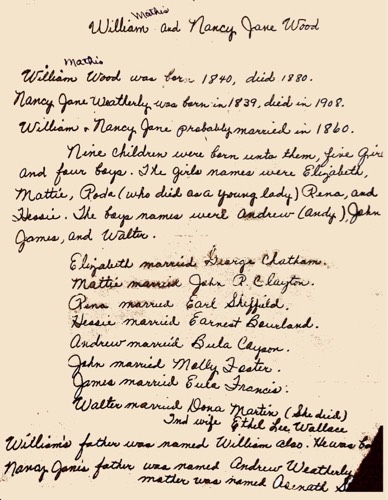 Mathis
William and Nancy Jane Wood
Mathis
William Wood was born 1840, died 1880.
Nancy Jane Weatherly was born in 1839, died in 1908.
William & Nancy Jane probably married in 1860.
Nine children were born unto them, five Girl
and four boys. The girls names were Elizabeth,
Mattie, Roda (who died as a young lady) Rena, and
Hessie. The boys names were Andrew (Andy), John
James, and Walter.
Elizabeth married George Chatham.
Mattie married John P. Clayton.
Rena married Earl Sheffild.
Hessie married Earnest Bourland.
Andrew married Bula Cayson.
John married Molly Foster.
James married Eula Francis.
Walter married Dona Martin (She died)
2nd wife Ethel Lee Wallace
William's father was named William also. He was
Nancy Janes father was named Andrew Weatherly
mother was named Asenath